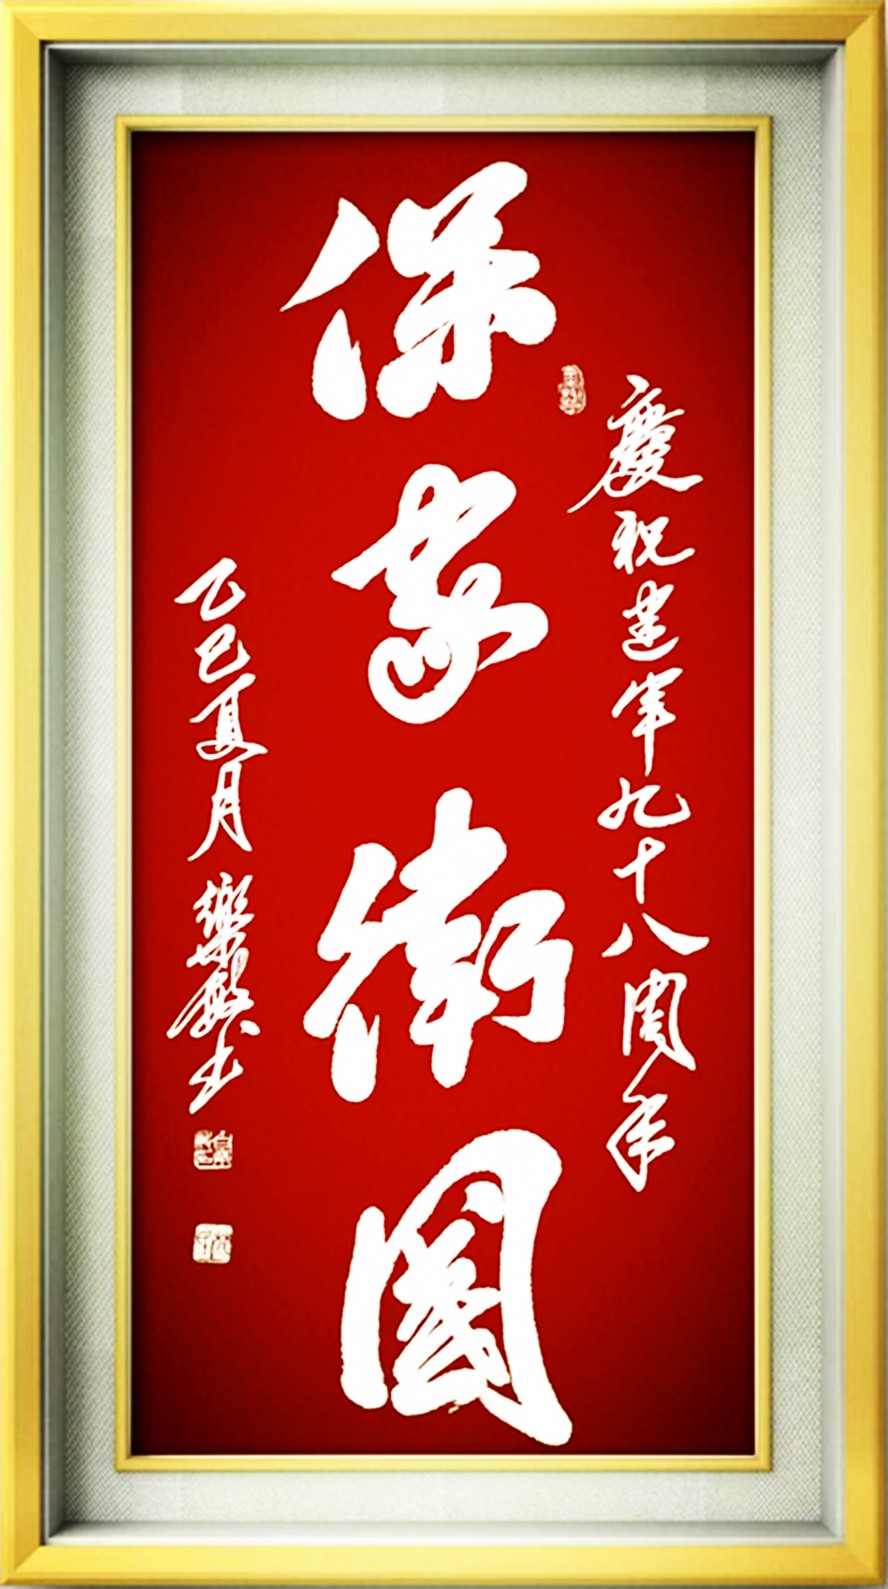 慶祝建军九十八周年
保家衛國
乙巳夏月樂敏书